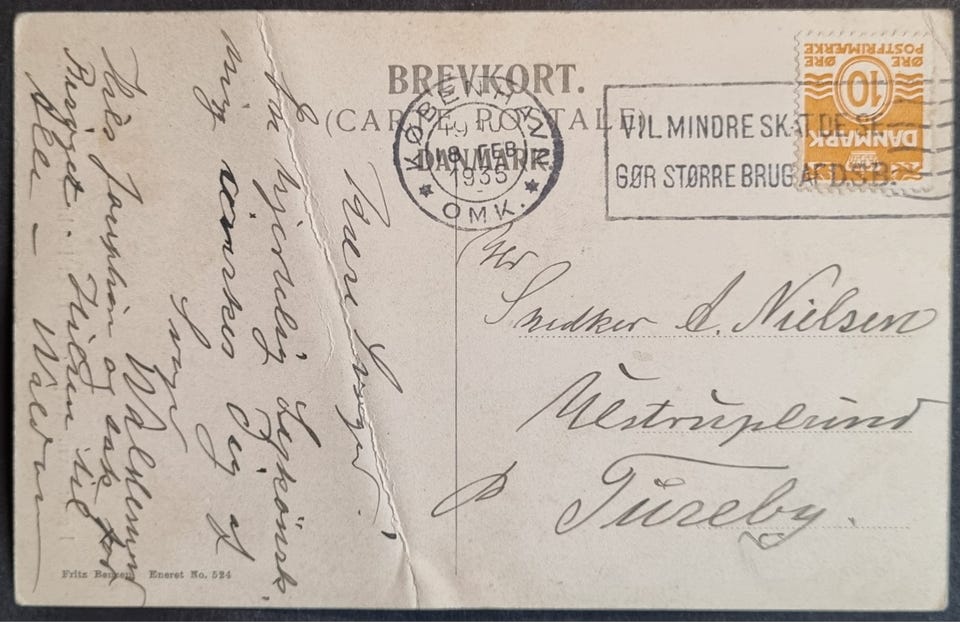 BREVKORT.
(CARTE POSTALE)
DANMARK.
KØBENHAVN
18 FEB
1935
OMK.
VIL MINDRE SKAT DE SE
GØR STØRRE BRUG AF D.S.B.
10
ØRE ØRE
POSTFRIMÆRKE
DANMARK
Hr
Snedker A. Nielsen
Ulstruplund
p Tureby.
Kære Svoger
En hjertelig Lykønskn.
mig og af
Svoger
Valdemar
og tak for
Besøget. Hilsen til
Alle – Valdem
Fritz Benzen Eneret No. 524